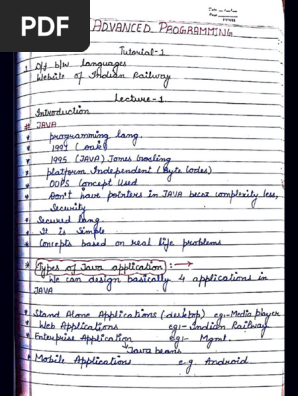 PDF
ADVANCED PROGRAMMING
Tutorial-1
Diff b/w languages
Website of Indian Railway
Lecture-1
Introduction
# JAVA
* programming lang.
* 1994 (oak)
* 1995 (JAVA) James Gosling
* platform Independent (Byte Codes)
* OOPS Concept Used
* Don't have pointers in JAVA becoz complexity less,
Security
* Secured lang.
* It is Simple
* Concepts based on real life problems
* Types of Java application : →
We can design basically 4 applications in
JAVA
* Stand Alone Applications (desktop) eg:-Media player
* Web Applications eg:- Indian Railway
* Enterprise Application eg:- Mgmt.
↳ Java beans
* Mobile Applications e.g. Android